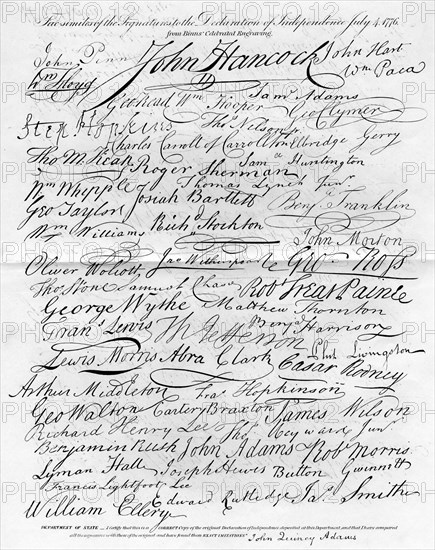 Fac-similes of the Signatures to the Declaration of Independence July 4. 1776.
from Binns' Celebrated Engraving.
John Penn John Hancock John Hart
Wm Floyd Wm Paca
Geo Read Wm Hooper Saml Adams Geo Clymer
Step Hopkins Thos Nelson jr.
Charles Carroll of Carrollton Elbridge Gerry
Tho M:Kean Roger Sherman Saml Huntington
Wm Whipple Thomas Lynch Junr.
Geo Taylor Josiah Bartlett Benj. Franklin
Wm Williams Richd Stockton John Morton
Oliver Wolcott Jno Witherspoon Geo Ross
Thos Stone Samuel Chase Robt Treat Paine
George Wythe Matthew Thornton
Frans. Lewis Th Jefferson Benj. Harrison
Lewis Morris Abra Clark Phil. Livingston
Cæsar Rodney
Arthur Middleton Fras Hopkinson
Geo Walton Carter Braxton James Wilson
Richard Henry Lee Thos Heyward Junr.
Benjamin Rush John Adams Robt Morris
Lyman Hall Joseph Hewes Button Gwinnett
Francis Lightfoot Lee
William Ellery Edward Rutledge Jas. Smith
DEPARTMENT OF STATE I certify that this is a CORRECT COPY of the original Declaration of Independence deposited at this Department; and that I have compared
all the signatures with those of the original and have found them EXACT IMITATIONS. John Quincy Adams